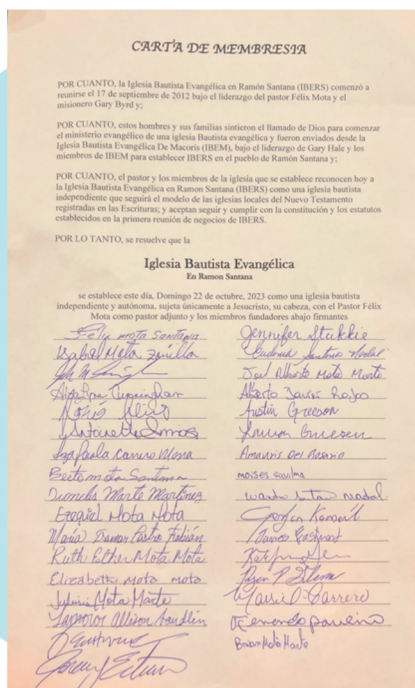 CARTA DE MEMBRESIA
POR CUANTO, la Iglesia Bautista Evangélica en Ramón Santana (IBERS) comenzó a
reunirse el 17 de septiembre de 2012 bajo el liderazgo del pastor Félix Mota y el
misionero Gary Byrd y;
POR CUANTO, estos hombres y sus familias sintieron el llamado de Dios para comenzar
el ministerio evangélico de una iglesia bautista evangélica y fueron enviados desde la
Iglesia Bautista Evangélica De Macorís (IBEM), bajo el liderazgo de Gary Hale y los
miembros de IBEM para establecer IBERS en el pueblo de Ramón Santana y;
POR CUANTO, el pastor y los miembros de la iglesia que se establece reconocen hoy a
la Iglesia Bautista Evangélica en Ramon Santana (IBERS) como una iglesia bautista
independiente que seguirá el modelo de las iglesias locales del Nuevo Testamento
registradas en las Escrituras; y aceptan seguir y cumplir con la constitución y los estatutos
establecidos en la primera reunión de negocios de IBERS.
POR LO TANTO, se resuelve que la
Iglesia Bautista Evangélica
En Ramon Santana
se establece este día, Domingo 22 de octubre, 2023 como una iglesia bautista
independiente y autónoma, sujeta únicamente a Jesucristo, su cabeza, con el Pastor Félix
Mota como pastor adjunto y los miembros fundadores abajo firmantes
Félix mota Santana
Isabal Mota Zorilla
María
Mota Santana
Dionelis Marte Martinez
Ezequiel Mota Mota
María
Ruth Esther Mota Mota
Elizabeth mota mota
Mota Marte
Allison
Jennifer
Joel Alberto Mota Marte
Alberto Javier Rojas
Austin Greeson
Greeson
Amarvis Del Rosario
moises
nadal
James
Carrero
Fernando
Brian Mota Marte